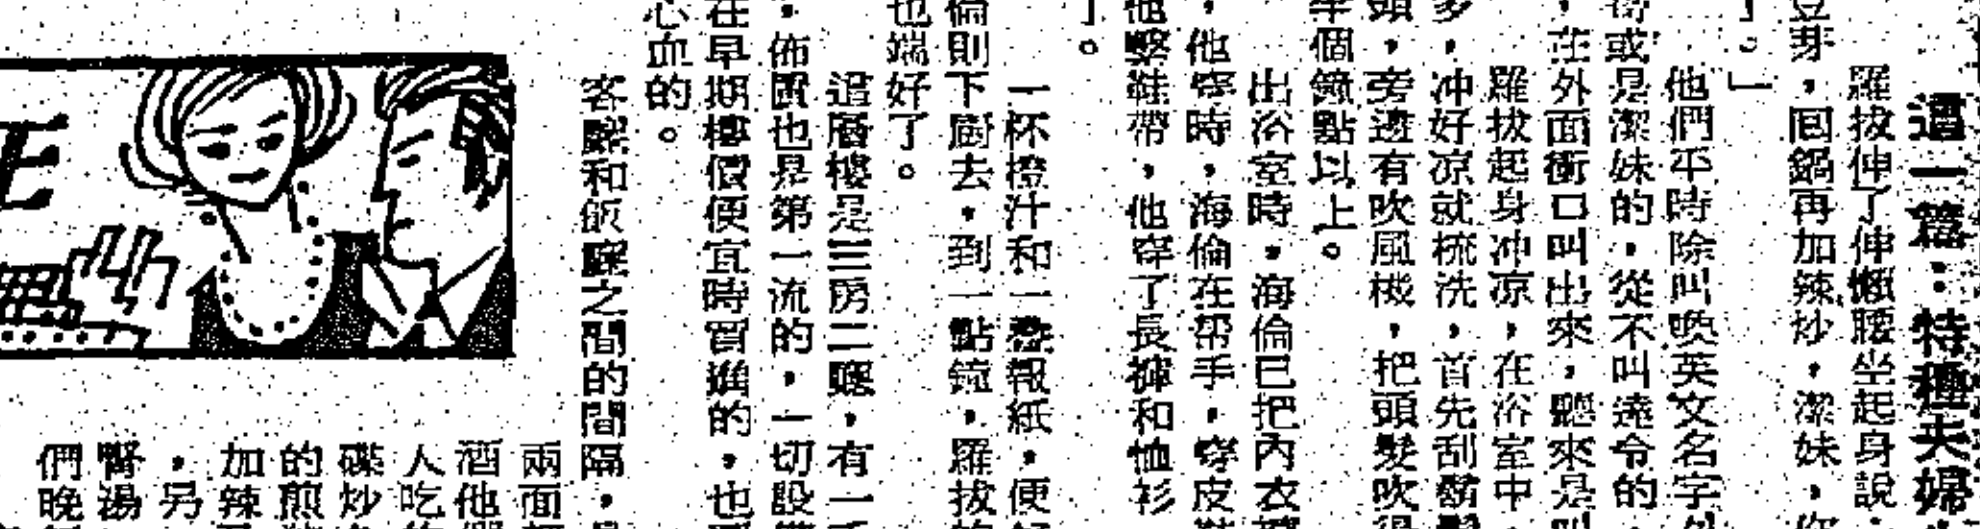 這一篇：特種夫婦
羅拔伸了伸懶腰坐起身說：
豆芽，囘鍋再加辣炒，潔妹，你
」。」
他們平時除叫喚英文名字外
哥或是潔妹的，從不叫達令的，
，在外面衝口叫出來，聽來是叫
羅拔起身冲凉，在浴室中，
多，冲好凉就梳洗，首先刮鬍鬚
頭，旁邊有吹風機，把頭髮吹得
半個鐘點以上。
出浴室時，海倫已把內衣褲
，他穿時，海倫在帮手，穿皮鞋
他繫鞋帶，他穿了長褲和恤衫
」。
一杯橙汁和一叠報紙，便
倫則下廚去，到一點鐘，羅拔的
也端好了。
這層樓是三房二廳，有一
，佈置也是第一流的，一切設備
在早期樓價便宜時買進的，也
心血的。
客廳和飯廳之間的間隔，是
兩面
酒他們
人吃的
碟炒
的煎
加辣
，另
腎湯
們晚飯
E